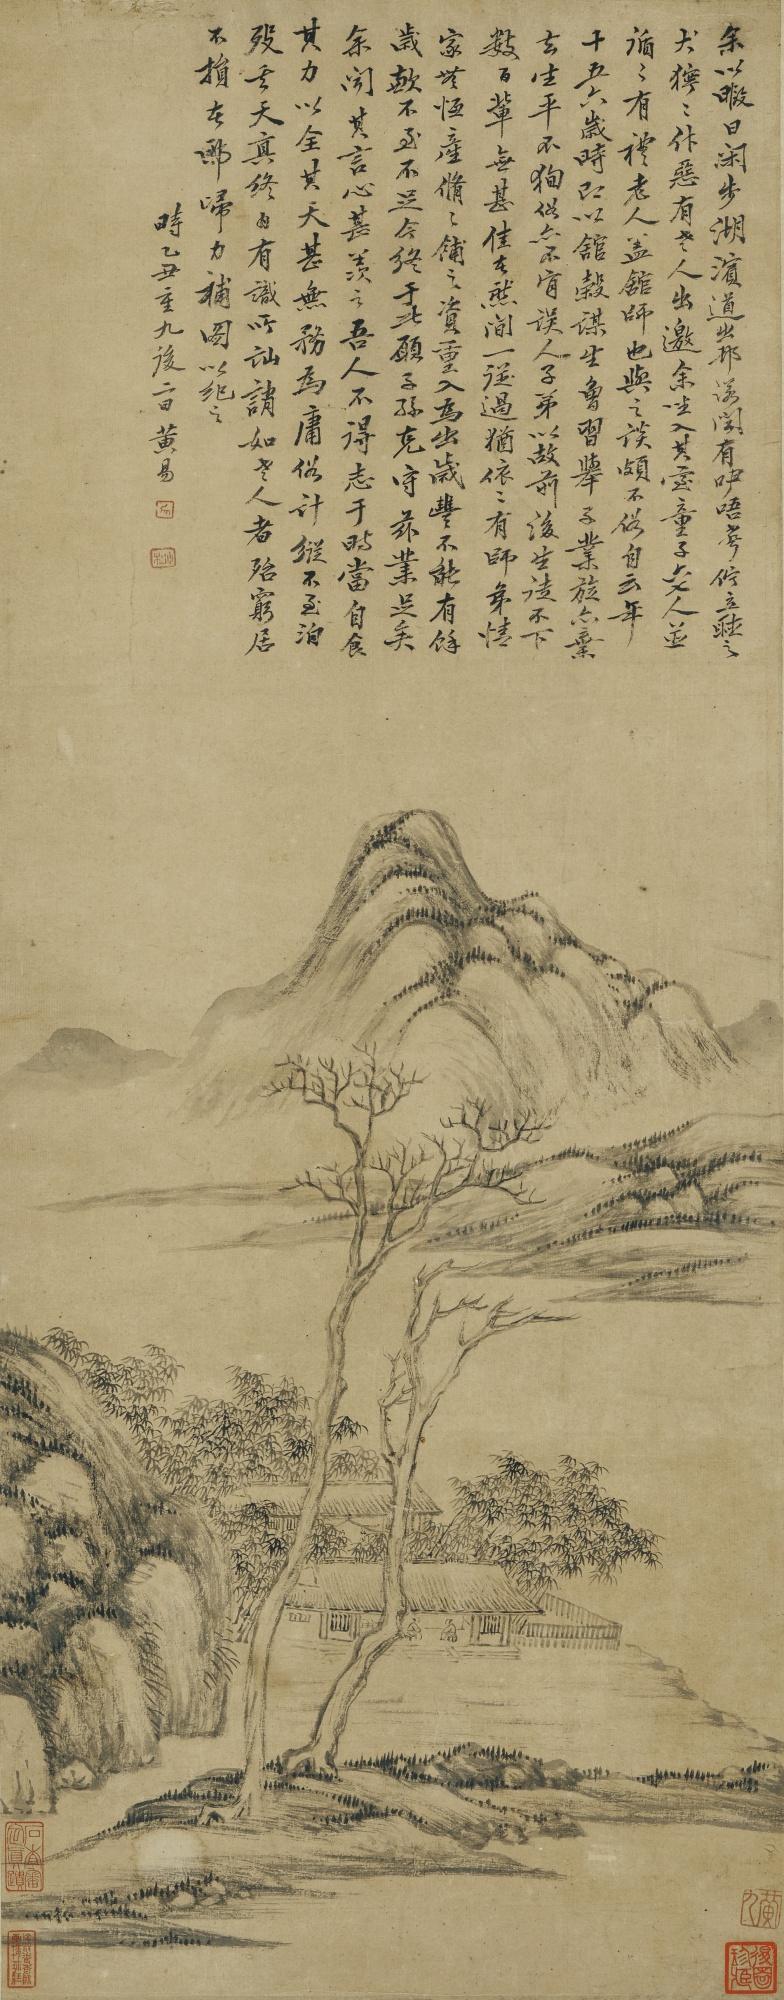 余以暇日闲步湖濱道出邨落闻有咿唔聲佇立聽之
犬獰〻作惡有老人出邀余坐入其室童子六七人並
循〻有禮老人盖舘師也與之談頗不俗自云年
十五六歲時即以舘榖謀生曾習舉子業旋亦棄
去生平不狥俗亦不肯误人子弟以故前後生徒不下
数百輩無甚佳者然间一従過猶依〻有師弟情
家無恒產脩〻舖之資量入為出歲豐不能有餘
歲歉不至不足今终于此願子孫克守茲業足矣
余闻其言心甚羡之吾人不得志于時當自食
其力以全其天甚無務為庸俗計縱不至泊
殁其天真终为有識所訕誚如老人者殆窮居
不損者歟歸而補圖以纪之
時乙丑重九後二日黄易